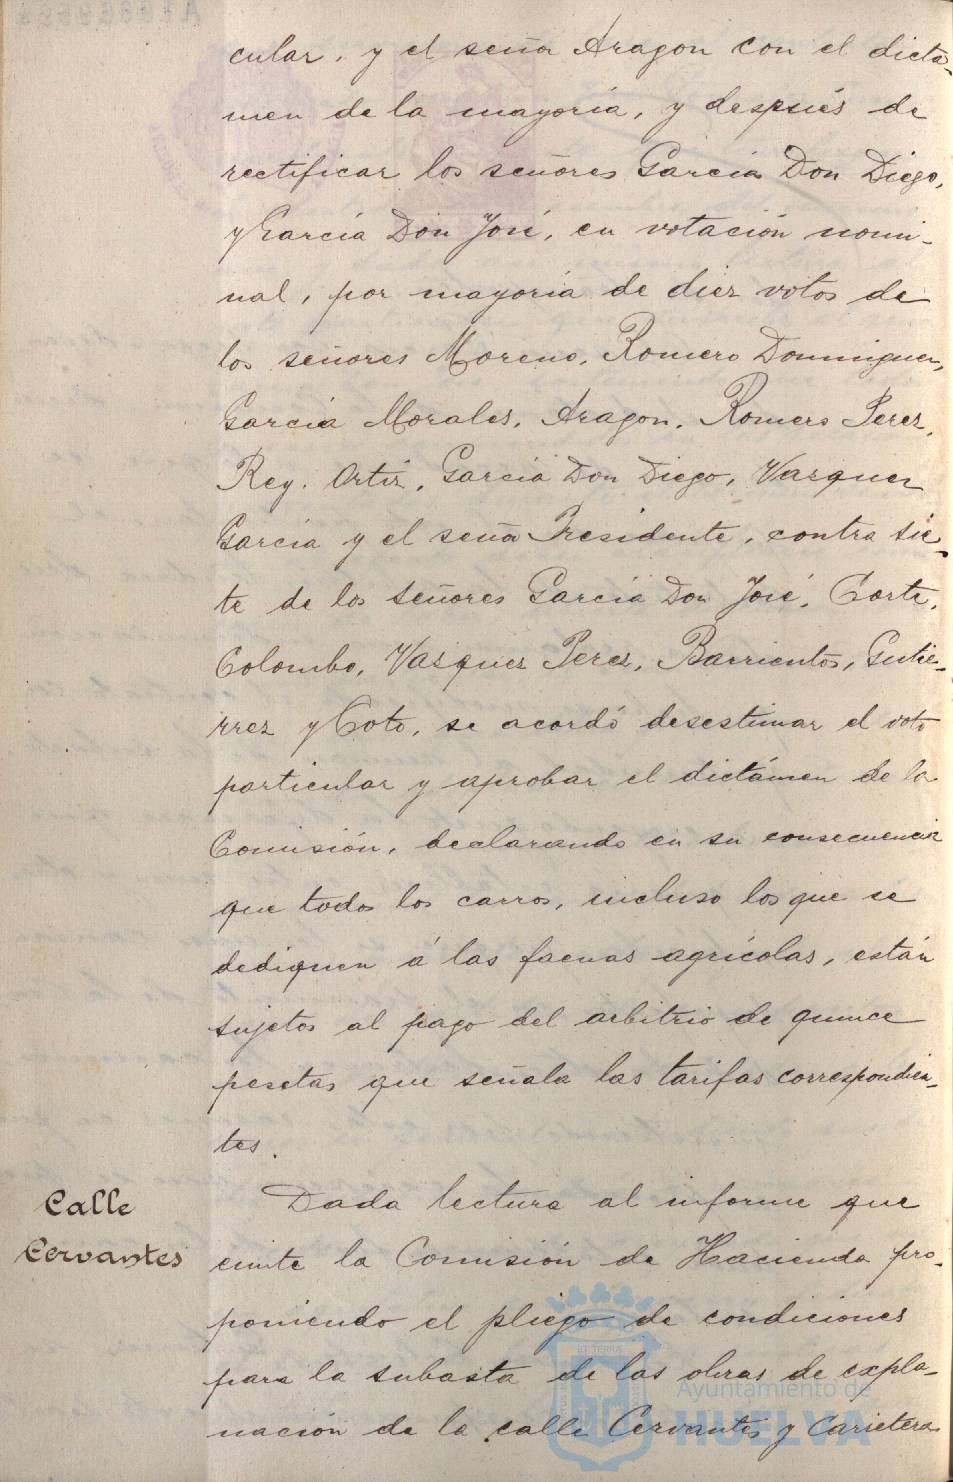 cular, y el señor Aragon con el dicta-
men de la mayoría, y después de
rectificar los señores García Don Diego,
y García Don José, en votación nomi-
nal, por mayoría de diez votos de
los señores Moreno, Romero Dominguez,
García Morales, Aragon, Romero Perez,
Rey, Ortiz, García Don Diego, Vazquez
García y el señor Presidente, contra sie-
te de los señores García Don José, Corte,
Colombo, Vazquez Perez, Barrientos, Gutie-
rrez y Coto, se acordó desestimar el voto
particular y aprobar el dictámen de la
Comisión, declarando en su consecuencia
que todos los carros, incluso los que se
dediquen á las faenas agrícolas, están
sujetos al pago del arbitrio de quince
pesetas que señala las tarifas correspondien-
tes.
Calle
Cervantes
Dada lectura al informe que
emite la Comisión de Hacienda pro-
poniendo el pliego de condiciones
para la subasta de las obras de expla-
nación de la calle Cervantes y Carretera
Ayuntamiento de
HUELVA